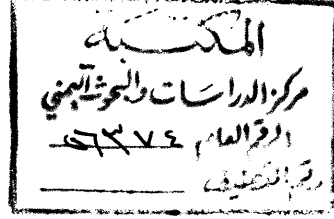 المكتبة
مركز الدراسات والبحوث اليمني
الرقم العام ٥٦٣٧٤
رقم التصنيف